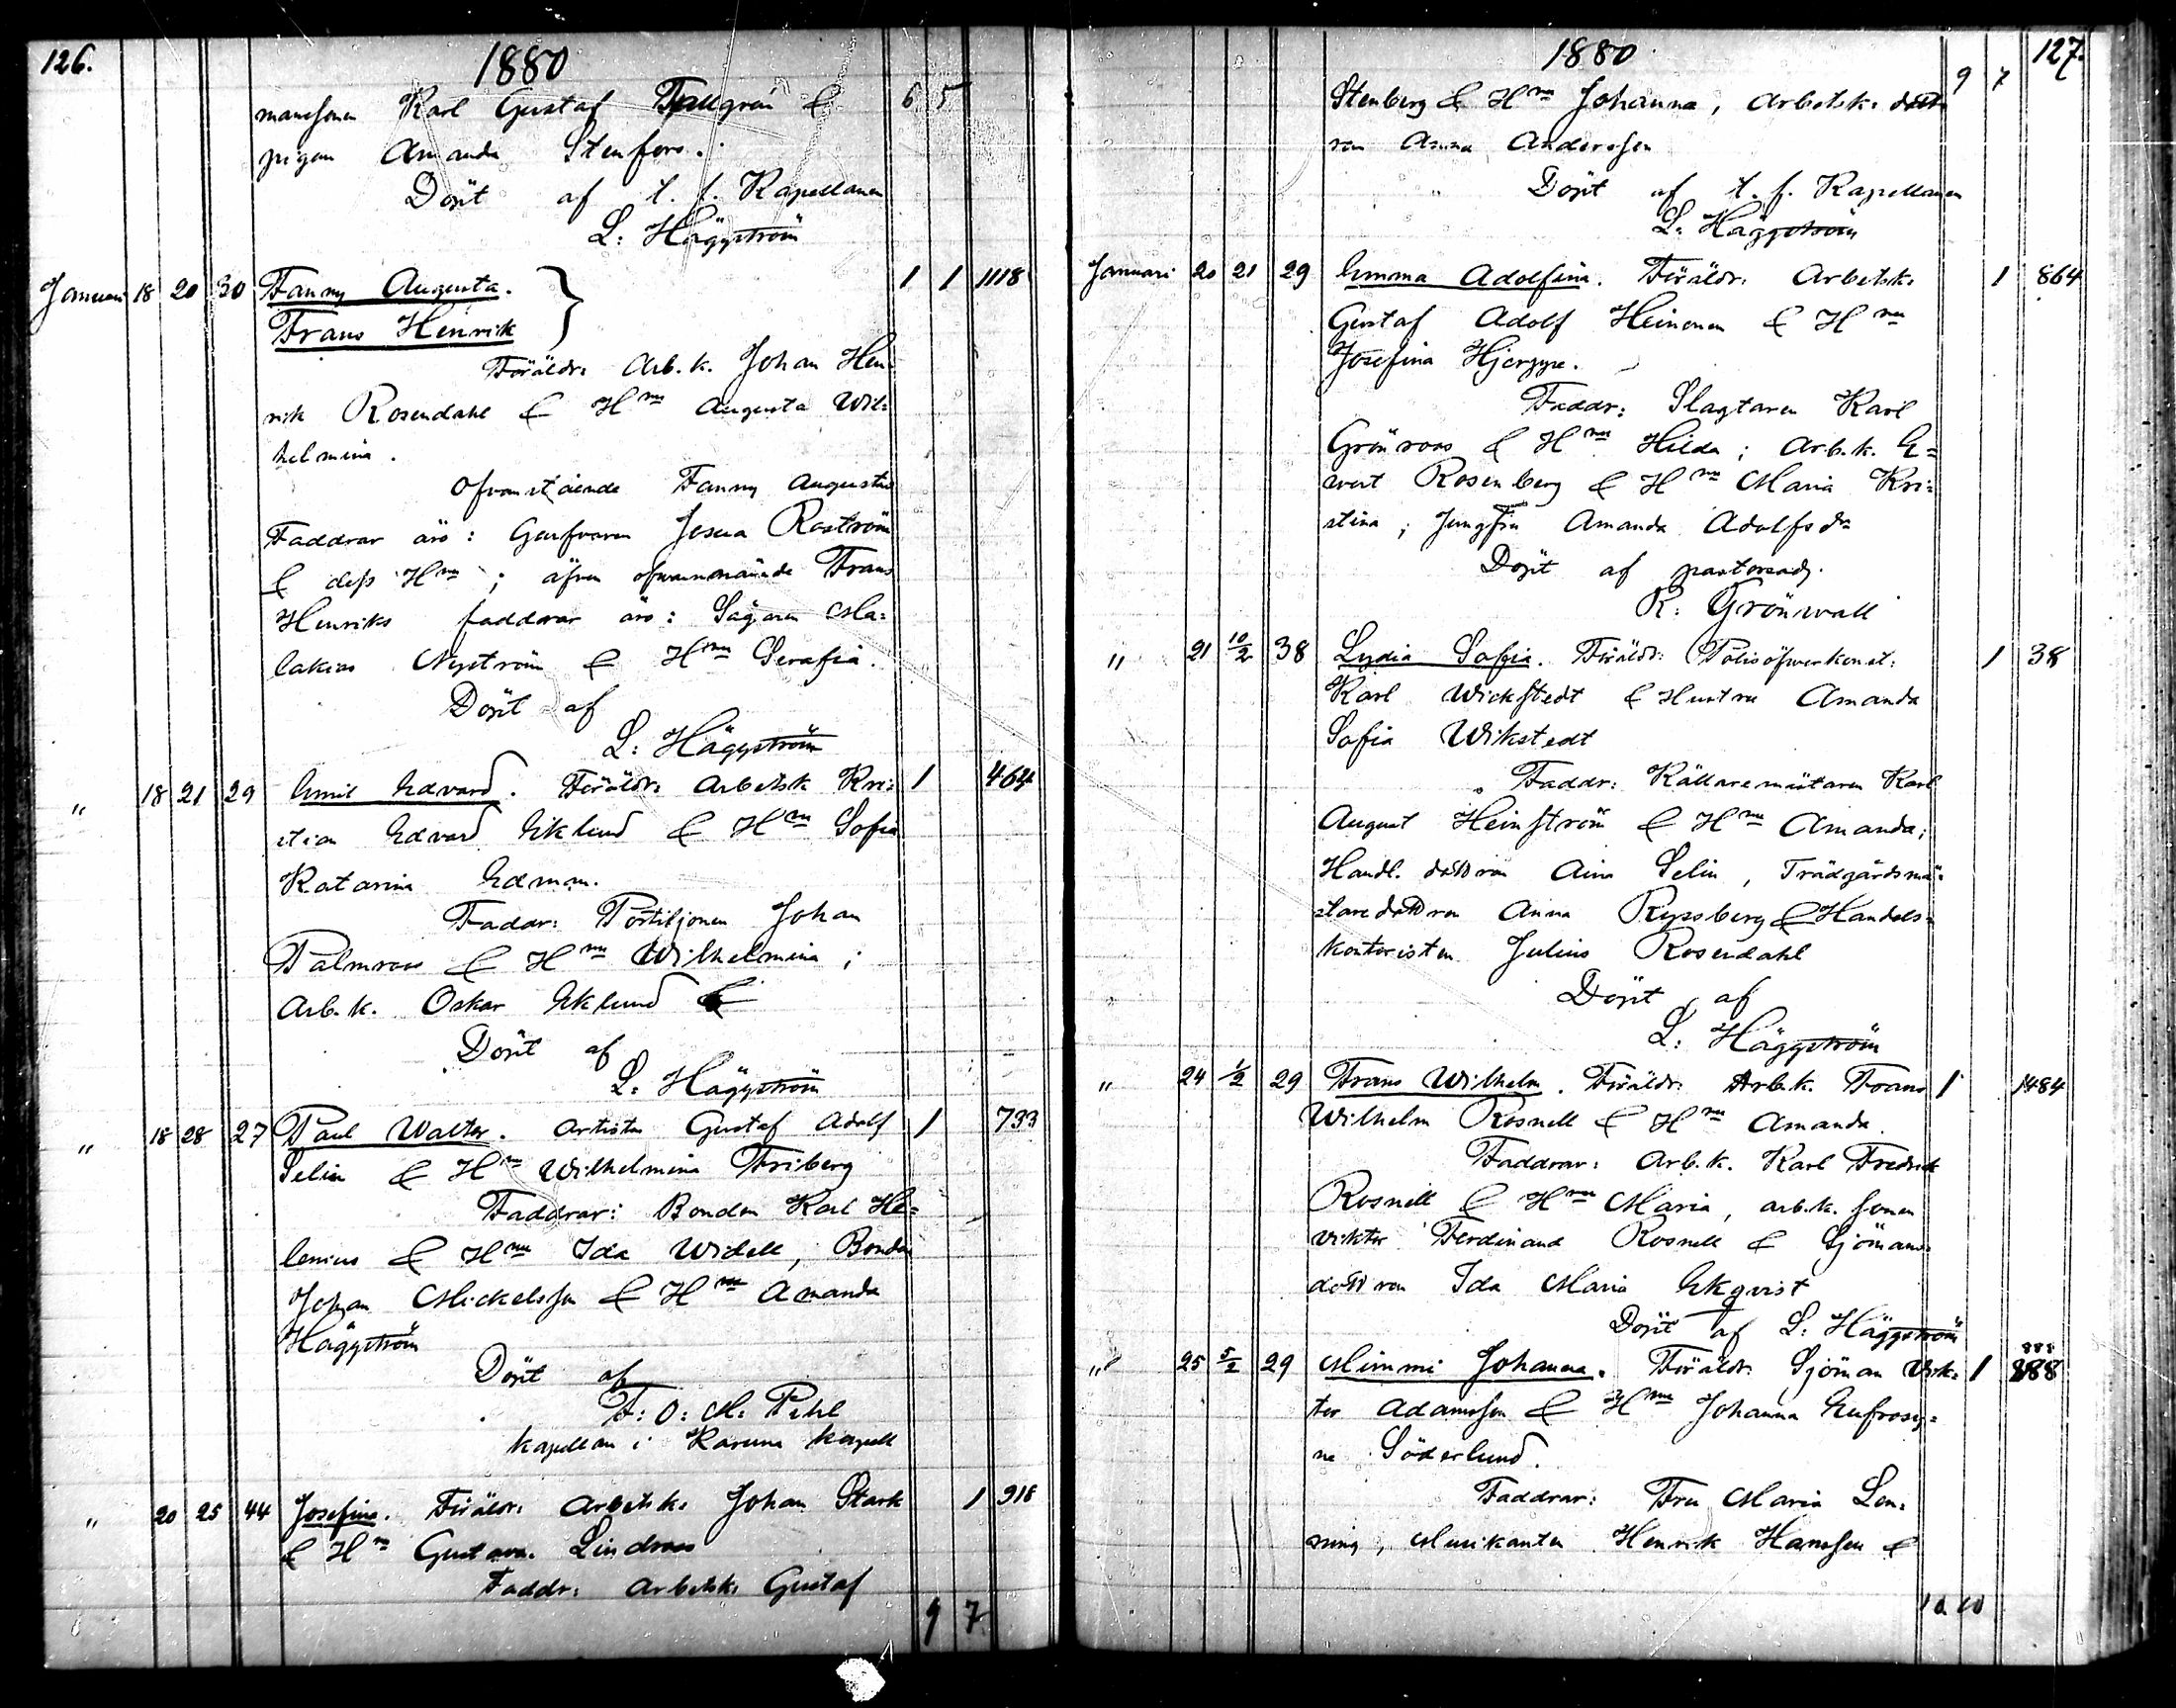 126.
1880
mansonen Karl Gustaf Tallgrén & 6 5
pigan Amanda Stenfors.
Döpt af t. f. Kapellanen
L: Häggström
Januari 18 20 30 Fanny Augusta. 1 1 1118
Frans Henrik }
Föräldr: Arb.k. Johan Hen-
rik Rosendahl & Hru Augusta Wil:
helmina.
Ofvanstående Fanny Augustas
Faddrar äro: Garfvaren Josua Roström
& dess Hru; äfven ofvannämnde Frans
Henriks faddrar äro: Sågaren Ma:
lakias Nyström & Hru Serafia.
Döpt af
L: Häggström
" 18 21 29 Emil Edvard. Föräldr: Arbetsk Kri: 1 464
stian Edvard Eklund & Hru Sofia
Katarina Edmm.
Faddr: Postiljonen Johan
Palmroos & Hru Wilhelmina;
Arb.k. Oskar Eklund &
Döpt af
L: Häggström
" 18 28 27 Paul Walter. Artisten Gustaf Adolf 1 733
Selin & Hru Wilhelmina Friberg
Faddrar: Bonden Karl He=
lenius & Hru Ida Widell, Bonden
Johan Mickelsson & Hru Amanda
Häggström
Döpt af
F: O: M: Pihl
Kapellan i Karuna Kapell
" 20 25 44 Josefina. Föräldr: Arbetsk: Johan Stark 1 918
& Hru Gustava Lindroos
Faddr: Arbetsk: Gustaf
9 7
1880
127.
Stenberg & Hru Johanna, Arbetsk: dott 9 7
ren Anna Andersson
Döpt af t. f. Kapellanen
L: Häggström
Januari 20 21 29 Emma Adolfina. Föräldr: Arbetsk: 1 864
Gustaf Adolf Heinonen & Hru
Josefina Hjerppe.
Faddr: Slagtaren Karl
Grönroos & Hru Hilda; Arb.k. E=
wert Rosenberg & Hru Maria Kri:
stina; Jungfru Amanda Adolfsdr
Döpt af pastorsadj.
R: Grönwall
" 21 10/2 38 Lydia Sofia. Föräldr: Polisöfverkonst. 1 38
Karl Wickstedt & Hustru Amanda
Sofia Wikstedt
Faddr: Källaremästaren Karl
August Heinström & Hru Amanda;
Handl. dottren Aina Selin, Trädgårdsmä:
staredottren Anna Ryssberg & Handels=
kontoristen Julius Rosendahl
Döpt af
L: Häggström
" 24 1/2 29 Frans Wilhelm. Föräldr: Arb.k. Frans 1 1484
Wilhelm Rosnell & Hru Amanda.
Faddrar: Arb.k. Karl Fredrik
Rosnell & Hru Maria, arb.k. sonen
Viktor Ferdinand Rosnell & Sjömans
dottren Ida Maria Ekqvist
Döpt af L: Häggström
888
" 25 5/2 29 Mimmi Johanna. Föräldr: Sjöman Vik: 1 888
tor Adamsson & Hru Johanna Eufrosy=
ne Söderlund.
Faddrar: Fru Maria Len:
ning, Musikanten Henrik Hansson &
10 10